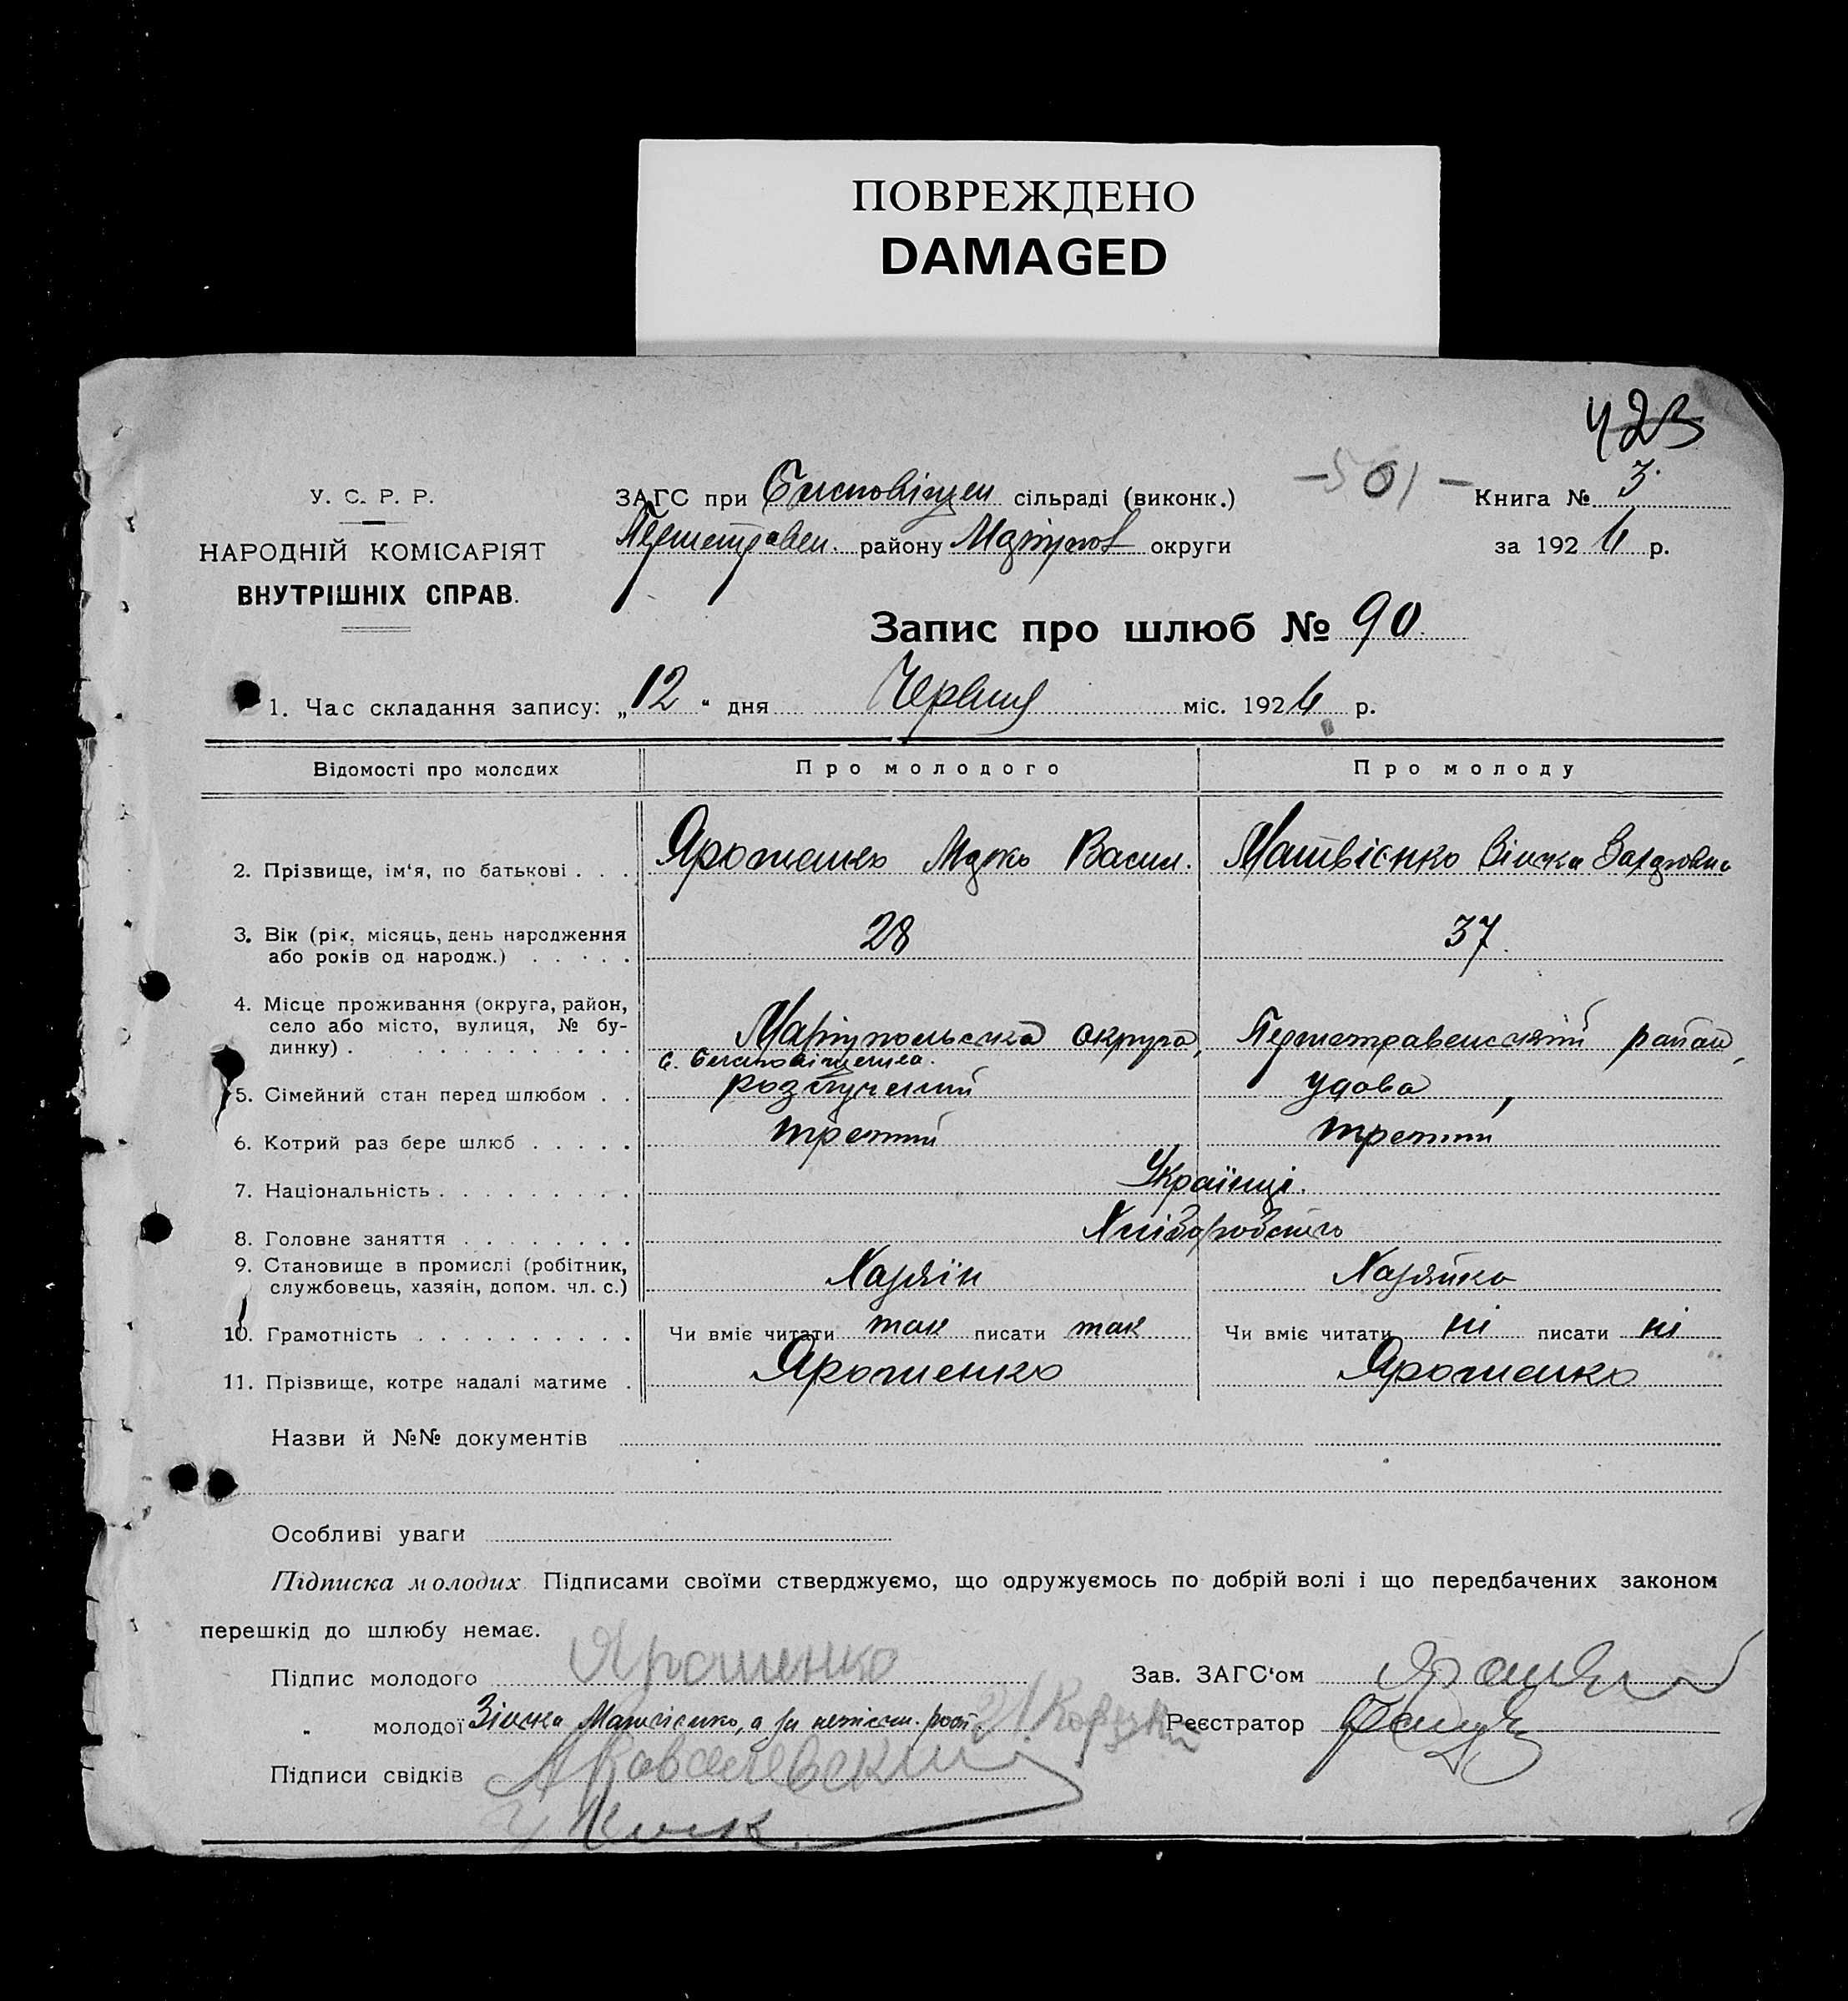 ПОВРЕЖДЕНО
DAMAGED
423
-501-
У. С. Р. Р.
НАРОДНІЙ КОМІСАРІЯТ
ВНУТРІШНІХ СПРАВ.
ЗАГС при сільраді (виконк.)
району округи
Книга № 3
за 1926 р.
Запис про шлюб № 90
1. Час складання запису: „12“ дня Червня міс. 1926 р.
Відомості про молодих Про молодого Про молоду
2. Прізвище, ім'я, по батькові . . . Ярошенко Васил. Матвієнко Зінька
3. Вік (рік, місяць, день народження
або років од народж.) . . . . . 28 37
4. Місце проживання (округа, район,
село або місто, вулиця, № бу-
динку) . . . . . . . . . . Маріупольська округа, Першотравенський район,
с.
5. Сімейний стан перед шлюбом . . розлучений удова
6. Котрий раз бере шлюб . . . . . третій третій
7. Національність . . . . . . . . . Українці.
8. Головне заняття . . . . . . . . Хліборобство
9. Становище в промислі (робітник,
службовець, хазяін, допом. чл. с.) Хазяїн Хазяйка
10. Грамотність . . . . . . . . . . Чи вміє читати так писати так Чи вміє читати ні писати ні
11. Прізвище, котре надалі матиме . Ярошенко Ярошенко
Назви й №№ документів
Особливі уваги
Підписка молодих. Підписами своїми стверджуємо, що одружуємось по добрій волі і що передбачених законом
перешкід до шлюбу немає.
Підпис молодого Ярошенко Зав. ЗАГС'ом
„ молодої Зінька Матвієнко, а за Реєстратор
Підписи свідків